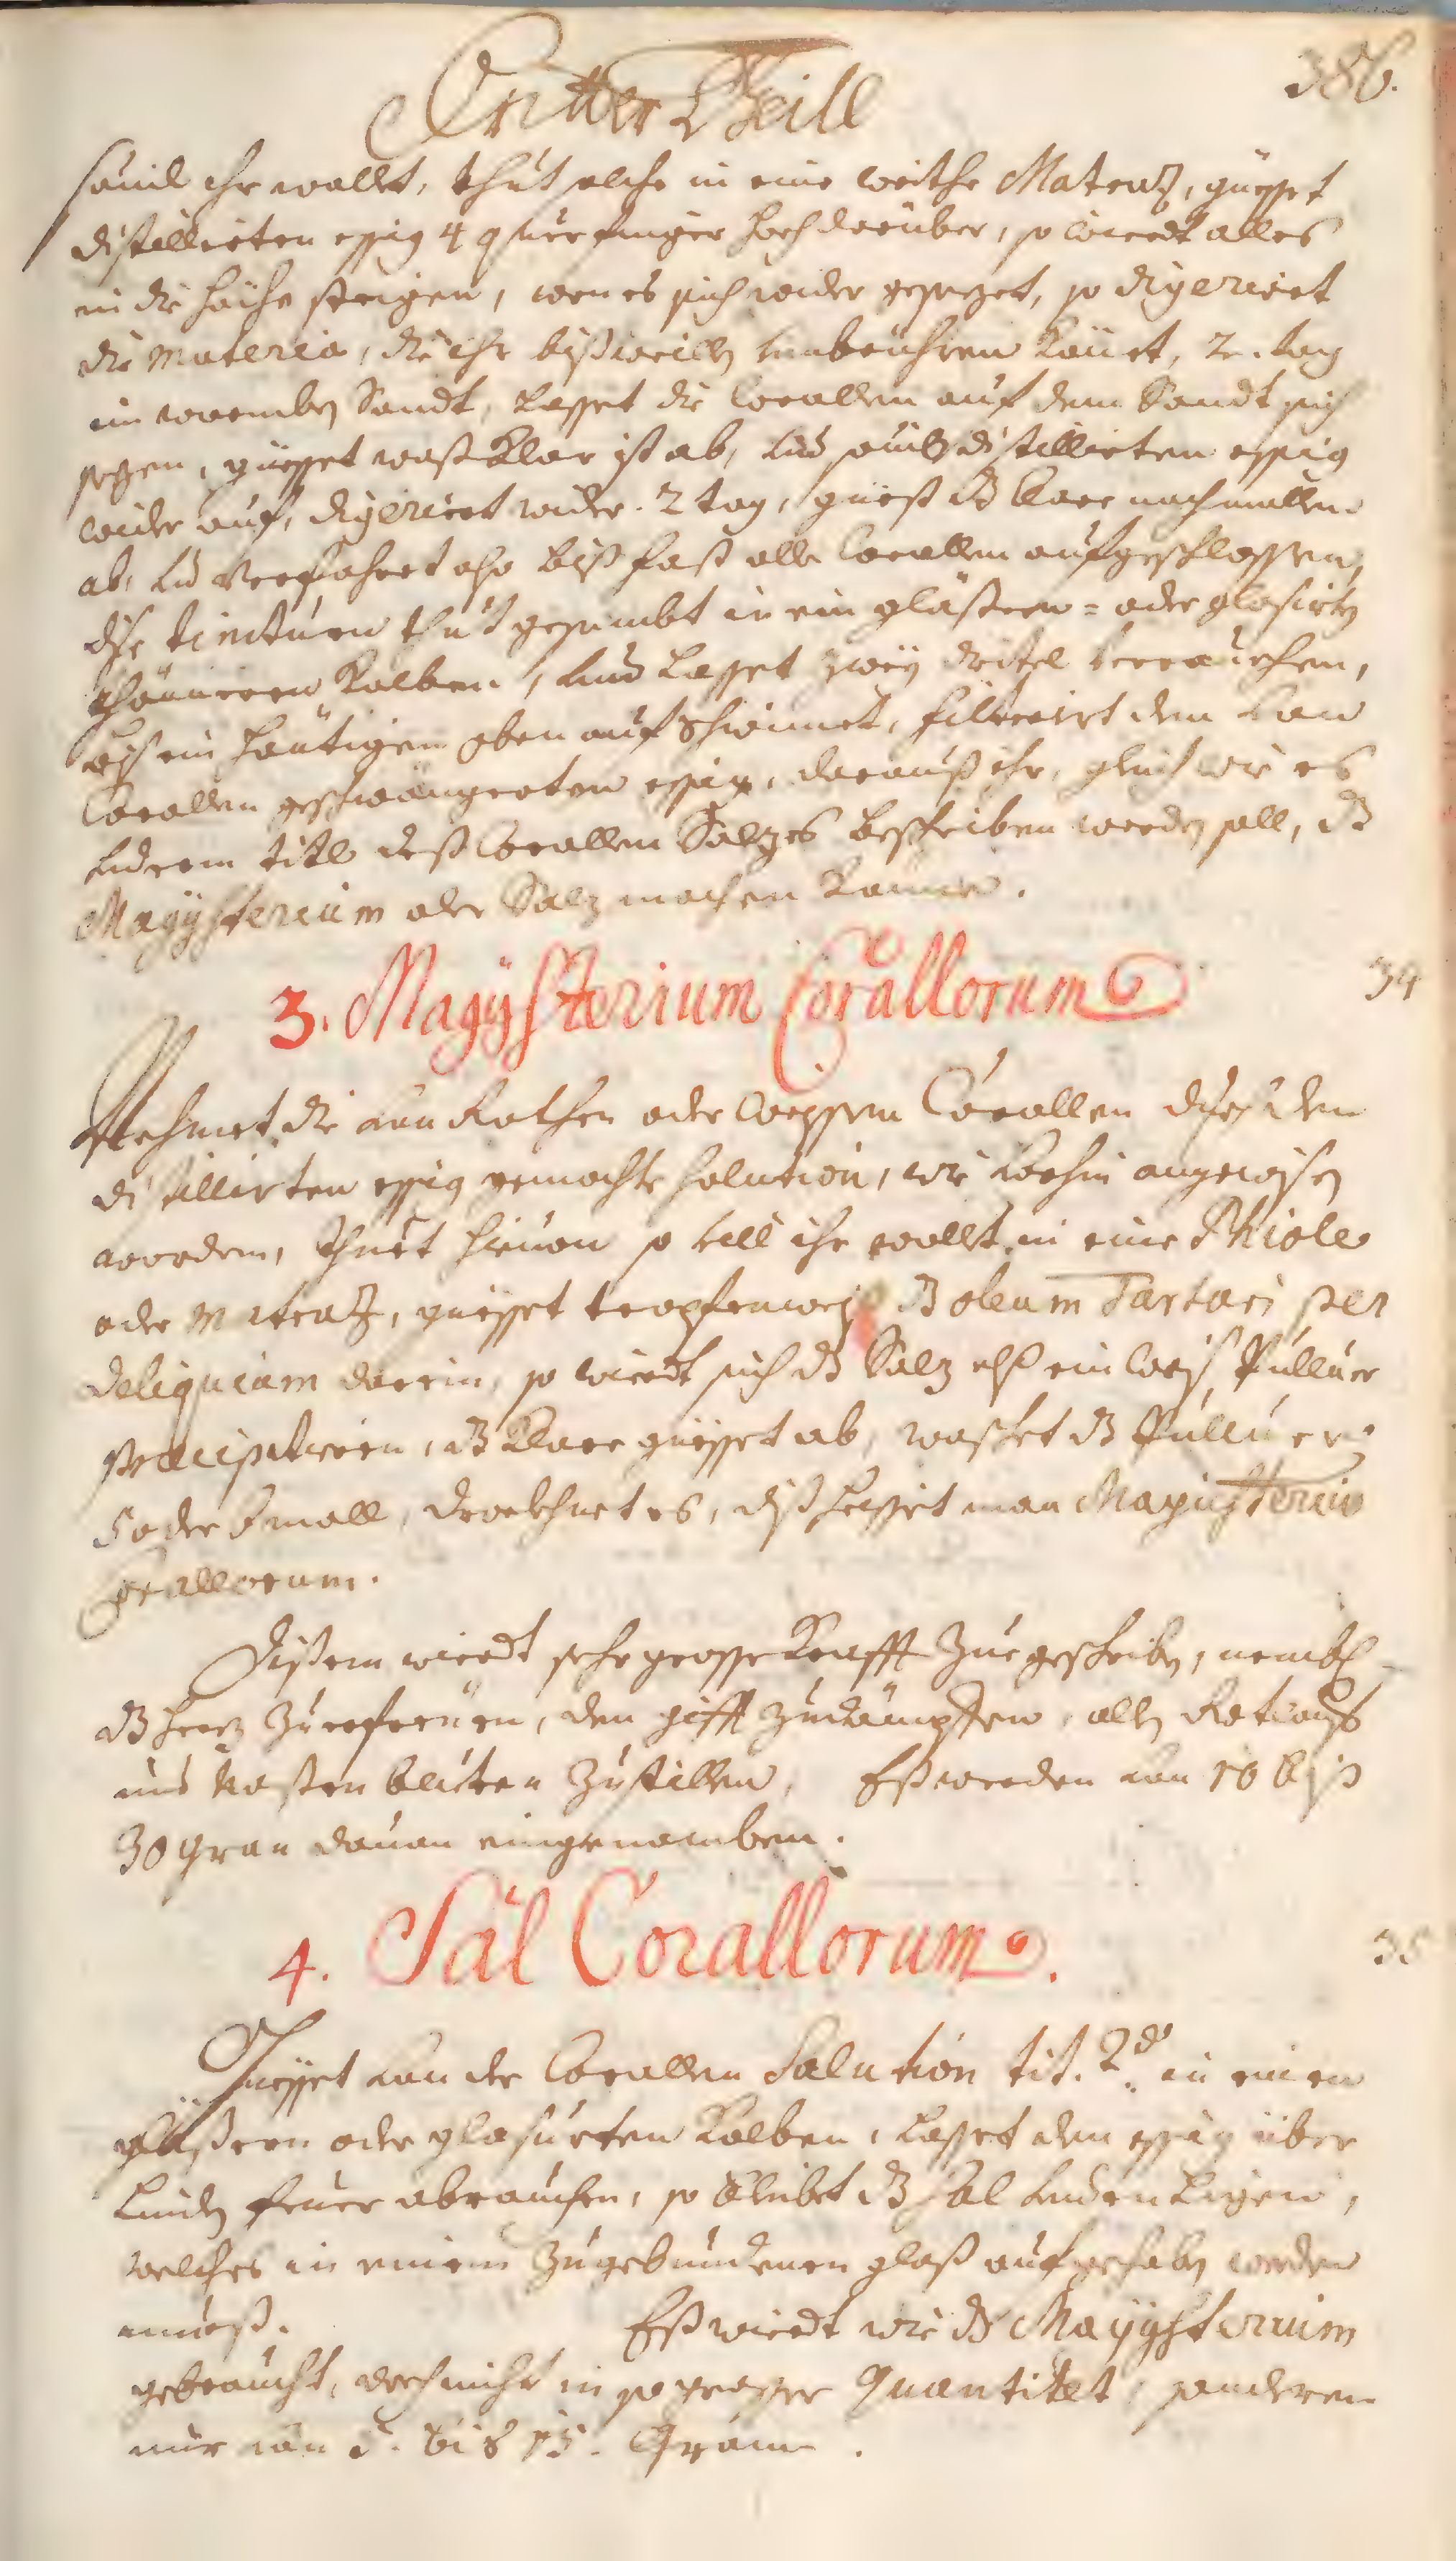 Erster Theill
386.
souil ihr wollet, thut solche in eine weithe Matraz, güesset
distillierten essig 4 querfinger hoch darüber, so wierdt alles
in die höche steigen, wen es sich wider gesezet, so digeriert
die Materia, die ihr bißweillen umbrühren könet, 2. tag
im warmben Sandt, Lasset die Corallen auf dem Sandt sich
sezen, güesset waß klar ist ab, und souil distillierten essig
wider auf, digeriert wider 2 tag, güest dz klare nachmallen
ab, und verfahret also biß fast alle Corallen aufgeschlossen,
dise tincturen thut gesambt in ein gläßern= oder glasierten
thönneren Kolben, und Lasset zwey dritel verrauchen,
biß ein häutigen oben auf schwimet, filtriert den von
Corallen geschwängerten essig, darauß ihr, gleich wie es
underm titl deß Corallen Salzes beschriben werden soll, dz
Magÿsterium oder Salz machen könet.
3. Magÿsterium Corallorum
34
Nehmet die von Rothen oder weissen Corallen durch den
distillirten essig gemachte solution, wie vorhin angewisen
worden, thuet hieuon so vill ihr wollet in eine Phiole
oder Matraz, güesset tropfenweiß dz oleum Tartari per
deliquium darein, so wierdt sich dz Salz alß ein weiß Pulluer
præcipitieren, dz klare güesset ab, waschet dz Pulluer
5 oder 6 mall, drockhnet es, diß heisset man Magisterium
Corallorum.
Dißem wierdt sehr grosse Krafft zue geschriben, nemblich
dz herz zuerfreüen, den gifft zudämpfen, allen
und Nasten bluten zustillen, Eß werden von 10 biß
30 Gran dauon eingenomben.
4. Sal Corallorum.
35
Güesset von der Corallen Solution tit. 2d. in einen
gläßern oder glasurten Kolben, Lasset den essig über
Linden feuer abrauchen, so bleibet dz sal unden Ligen,
welches in einem zuegebundenen glaß aufgehaben werden
mueß. Eß wierdt wie dz Magÿsterium
gebraucht, doch nicht in so grosser Quantitet, sonderen
nur von 5. bis 15. Gran.